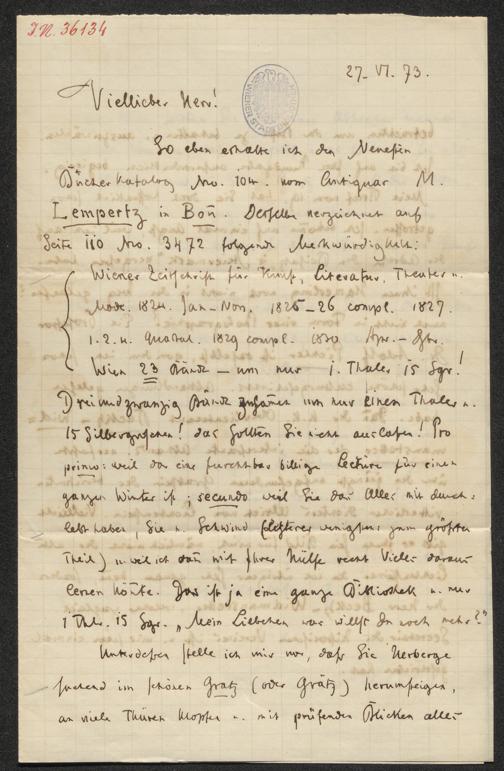 I.N. 36134
27. VI. 73.
Viellieber Herr!
So eben erhalte ich den Neuesten
Bücherkatalog No. 104. vom Antiquar M.
Lempertz in Bon̄. Derselbe verzeichnet auf
Seite 110 No. 3472 folgende Merkwürdigkeit:
Wiener Zeitschrift für Kunst, Literatur, Theater u.
Mode. 1824. Jan–Nov. 1825–26 compl. 1827.
1. 2. 4. Quartal. 1829 compl. 1830 Apr. –
Wien 23 Bände – um nur 1. Thaler 15 Sgr.!
Dreiundzwanzig Bände zusam̄en um nur Einen Thaler u.
15 Silbergroschen! das sollten Sie nicht auslassen! Pro
primo: weil das eine furchtbar billige Lectüre für einen
ganzen Winter ist; secundo weil Sie das Alles mit durch-
lebt haben, Sie u. Schwind (letzterer wenigstens zum größten
Theil) u. weil ich dan̄ mit Ihrer Hülfe recht Vieles daraus
lernen kön̄te. Das ist ja eine ganze Bibliothek u. nur
1 Thl. 15 Sgr. „Mein Liebchen was willst Du noch mehr?"
Unterdessen stelle ich mir vor, daß Sie Herberge
suchend im schönen Gratz (oder Grätz) herumsteigen,
an viele Thüren klopfen u. mit prüfenden Blicken alles